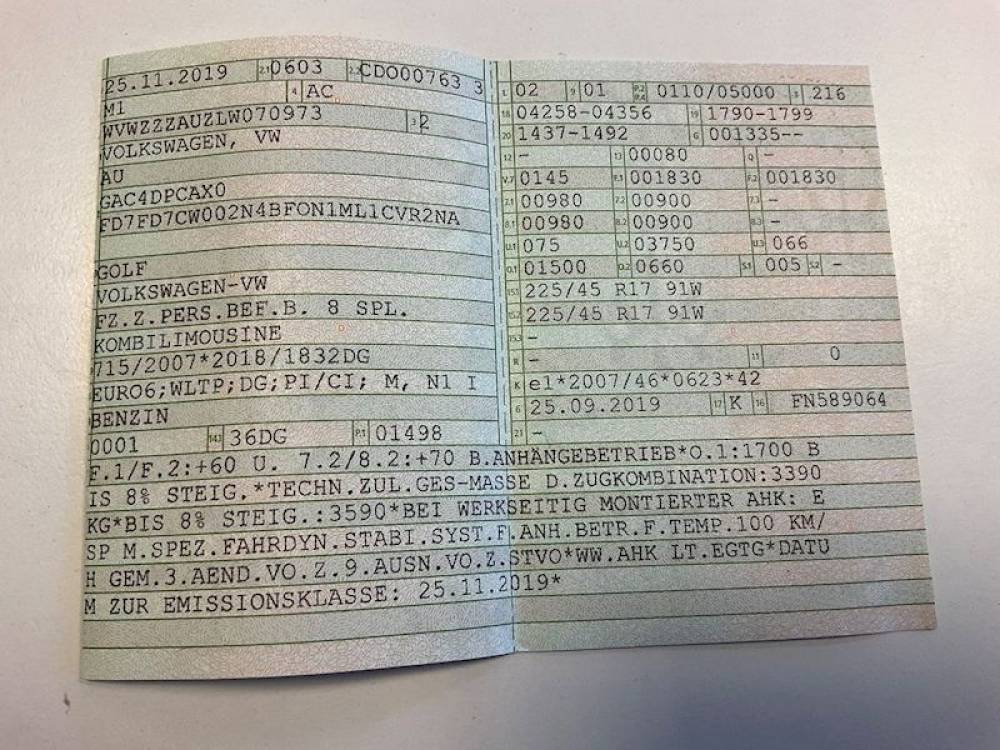 25.11.2019 2.1 0603 2.2 CDO00763 3
M1 4 AC
WVWZZZAUZLW070973 3 2
VOLKSWAGEN, VW
AU
GAC4DPCAX0
FD7FD7CW002N4BFON1ML1CVR2NA
GOLF
VOLKSWAGEN-VW
FZ.Z.PERS.BEF.B. 8 SPL.
KOMBILIMOUSINE
715/2007*2018/1832DG
EURO6;WLTP;DG;PI/CI; M, N1 I
BENZIN
0001 14.1 36DG P.1 01498
L 02 9 01 P.2 P.4 0110/05000 T 216
18 04258-04356 19 1790-1799
20 1437-1492 G 001335--
12 - 13 00080 Q -
V.7 0145 F.1 001830 F.2 001830
7.1 00980 7.2 00900 7.3 -
8.1 00980 8.2 00900 8.3 -
U.1 075 U.2 03750 U.3 066
O.1 01500 O.2 0660 S.1 005 S.2 -
15.1 225/45 R17 91W
15.2 225/45 R17 91W
15.3 -
R - 11 0
K e1*2007/46*0623*42
6 25.09.2019 17 K 16 FN589064
21 -
F.1/F.2:+60 U. 7.2/8.2:+70 B.ANHÄNGEBETRIEB*O.1:1700 B
IS 8% STEIG.*TECHN.ZUL.GES-MASSE D.ZUGKOMBINATION:3390
KG*BIS 8% STEIG.:3590*BEI WERKSEITIG MONTIERTER AHK: E
SP M.SPEZ.FAHRDYN.STABI.SYST.F.ANH.BETR.F.TEMP.100 KM/
H GEM.3.AEND.VO.Z.9.AUSN.VO.Z.STVO*WW.AHK LT.EGTG*DATU
M ZUR EMISSIONSKLASSE: 25.11.2019*